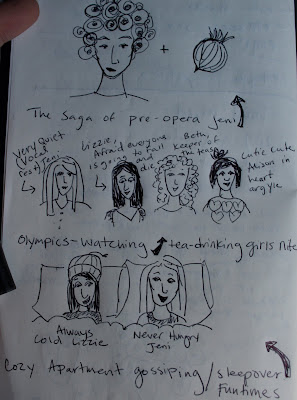 +
The Saga of pre-opera Jeni
Very Quiet
Vocal
rest Jeni
Lizzie,
Afraid everyone
is going to fall
and
die
Beth,
Keeper of
the teas
Cutie Cute
Alison in
heart
argyle
Olympics-Watching tea-drinking girls Nite
Always
Cold Lizzie
Never Hungry
Jeni
Cozy Apartment gossiping/sleepover
Funtimes